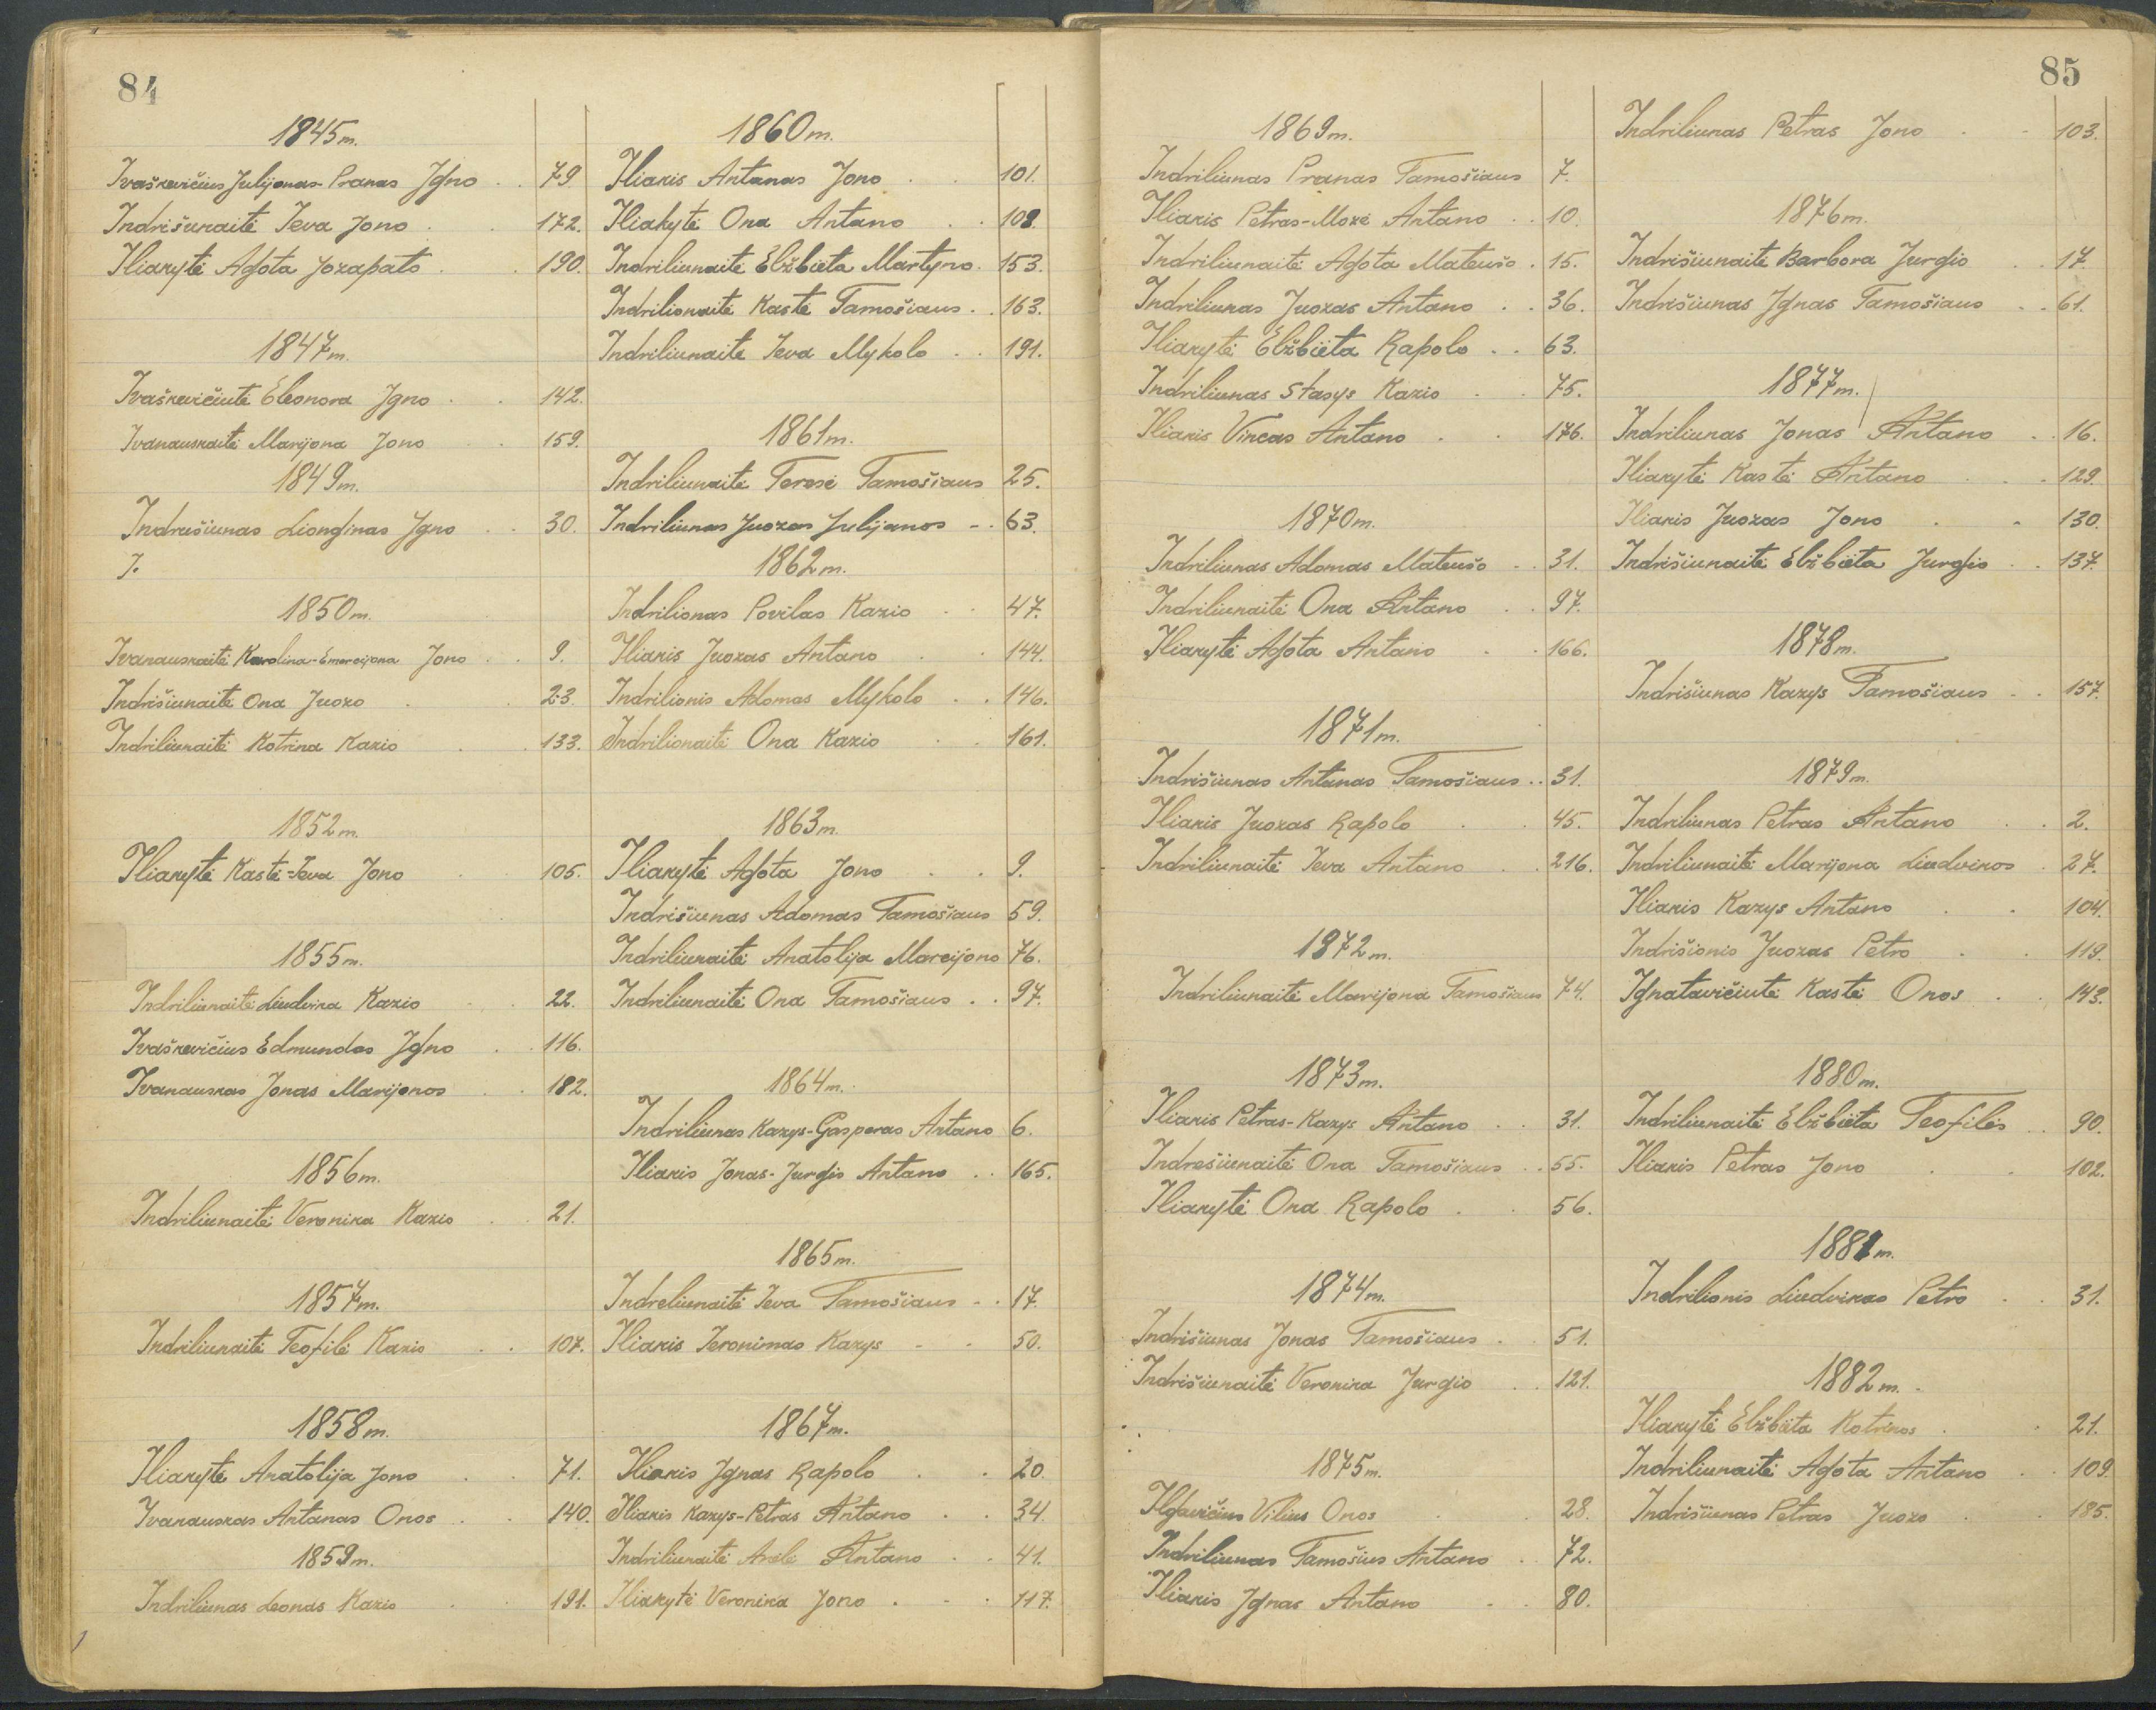 84
1845m.
Ivaškevičius Julijonas-Pranas Igno . . 79.
Indrišunaitė Ieva Jono . . 172.
Iliakytė Agota Jozapato . . 190.
1847m.
Ivaškevičiutė Eleonora Igno . . 142.
Ivanauskaitė Marijona Jono . . 159.
1849m.
Indrušiunas Lionginas Igno . . 30.
I.
1850m.
Ivanauskaitė Karolina-Emercijona Jono . . 9.
Indrišiunaitė Ona Juozo . . 23.
Indriliunaitė Kotrina Kazio . . 133.
1852m.
Iliakytė Kastė-Ieva Jono . 105.
1855m.
Indriliunaitė Liudvika Kazio . . 22.
Ivaškevičius Edmundas Igno . . 116.
Ivanauskas Jonas Marijonos . . 182.
1856m.
Indriliunaitė Veronika Kazio . . 21.
1857m.
Indriliunaitė Teofilė Kazio . . 107.
1858m.
Iliakytė Anatolija Jono . . 71.
Ivanauskas Antanas Onos . . 140.
1859m.
Indriliunas Leonas Kazio . . 191.
1860m.
Iliakis Antanas Jono . . 101.
Iliakytė Ona Antano . . 108.
Indriliunaitė Elžbieta Martyno. 153.
Indrilionaitė Kastė Tamošiaus . . 163.
Indriliunaitė Ieva Mykolo . . 191.
1861m.
Indriliunaitė Teresė Tamošiaus 25.
Indriliunas Juozas Julijonos - . 63.
1862m.
Indrilionas Povilas Kazio . . 47.
Iliakis Juozas Antano . . 144.
Indrilionis Adomas Mykolo . . 146.
Indrilionaitė Ona Kazio . . 161.
1863m.
Iliakytė Agota Jono . . 9.
Indrišiunas Adomas Tamošiaus 59.
Indriliunaitė Anatolija Marcijono 76.
Indriliunaitė Ona Tamošiaus . . 97.
1864m.
Indriliunas Kazys-Gasparas Antano 6.
Iliakis Jonas-Jurgis Antano . . 165.
1865m.
Indreliunaitė Ieva Tamošiaus - . 17.
Iliakis Jeronimas Kazys - - 50.
1867m.
Iliakis Ignas Rapolo . . 20.
Iliakis Kazys-Petras Antano . . 34.
Indriliunaitė Anelė Antano . . 41.
Iliakytė Veronika Jono . - . 117.
85
1869m.
Indriliunas Pranas Tamošiaus 7.
Iliakis Petras-Mozė Antano . . 10.
Indriliunaitė Agota Mateušo . 15.
Indriliunas Juozas Antano . . 36.
Iliakytė Elžbieta Rapolo . . 63.
Indriliunas Stasys Kazio . . 75.
Iliakis Vincas Antano . . 176.
1870m.
Indriliunas Adomas Mateušo . . 31.
Indriliunaitė Ona Antano . . 97.
Iliakytė Agota Antano . . 166.
1871m.
Indrišiunas Antanas Tamošiaus . . 31.
Iliakis Juozas Rapolo . . 45.
Indriliunaitė Ieva Antano . . 216.
1872m.
Indriliunaitė Marijona Tamošiaus 74.
1873m.
Iliakis Petras-Kazys Antano . . 31.
Indrešiunaitė Ona Tamošiaus . . 55.
Iliakytė Ona Rapolo . . 56.
1874m.
Indrišiunas Jonas Tamošiaus . 51.
Indrišiunaitė Veronika Jurgio . . 121.
1875m.
Ilgavičius Vilius Onos . . 28.
Indriliunas Tamošius Antano . 72.
Iliakis Ignas Antano . . 80.
Indriliunas Petras Jono . - 103.
1876m.
Indrišiunaitė Barbora Jurgio . . 17.
Indrišiunas Ignas Tamošiaus . . 61.
1877m.
Indriliunas Jonas Antano . . 16.
Iliakytė Kastė Antano . . 129.
Iliakis Juozas Jono . . 130.
Indrišiunaitė Elžbieta Jurgio . . 137.
1878m.
Indrišiunas Kazys Tamošiaus . . 157.
1879m.
Indriliunas Petras Antano . . 2.
Indriliunaitė Marijona Liudvikos . 27.
Iliakis Kazys Antano . . 104.
Indrišionis Juozas Petro . . 119.
Ignatavičiutė Kastė Onos . . 143.
1880m.
Indriliunaitė Elžbieta Teofilės . . 90.
Iliakis Petras Jono . . 102.
1881m.
Indrilionis Liudvikas Petro . . 31.
1882m.
Iliakytė Elžbieta Kotrinos . . 21.
Indriliunaitė Agota Antano . . 109.
Indrišiunas Petras Juozo . . 185.